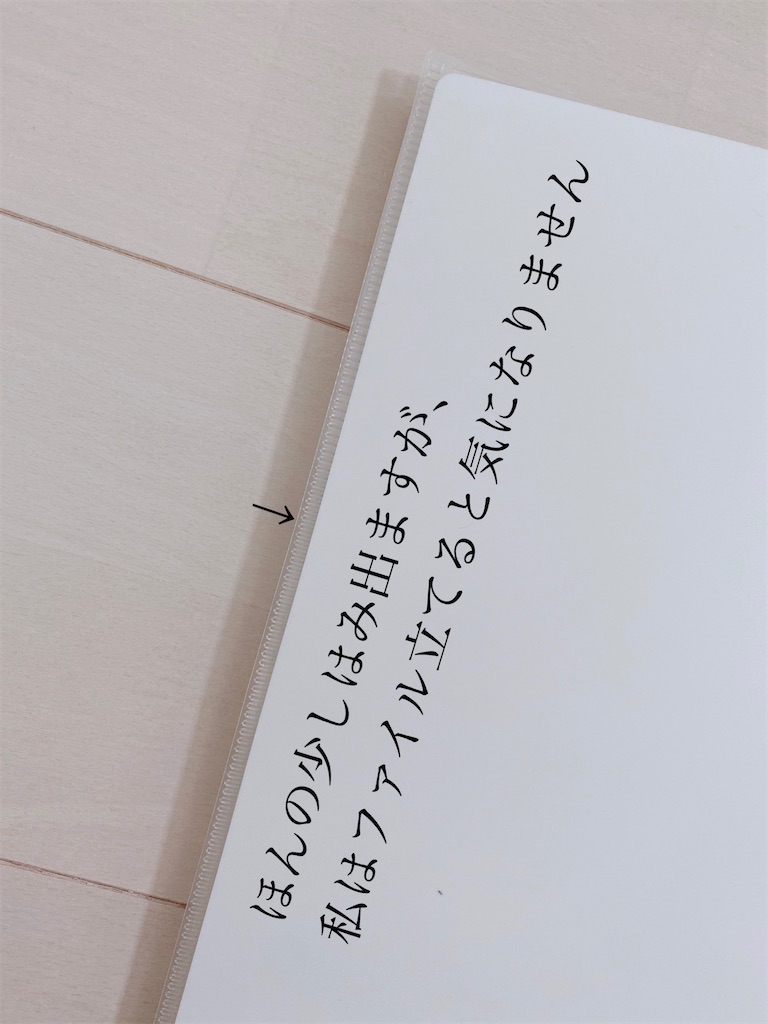 ほんの少しはみ出ますが、
私はファイル立てると気になりません